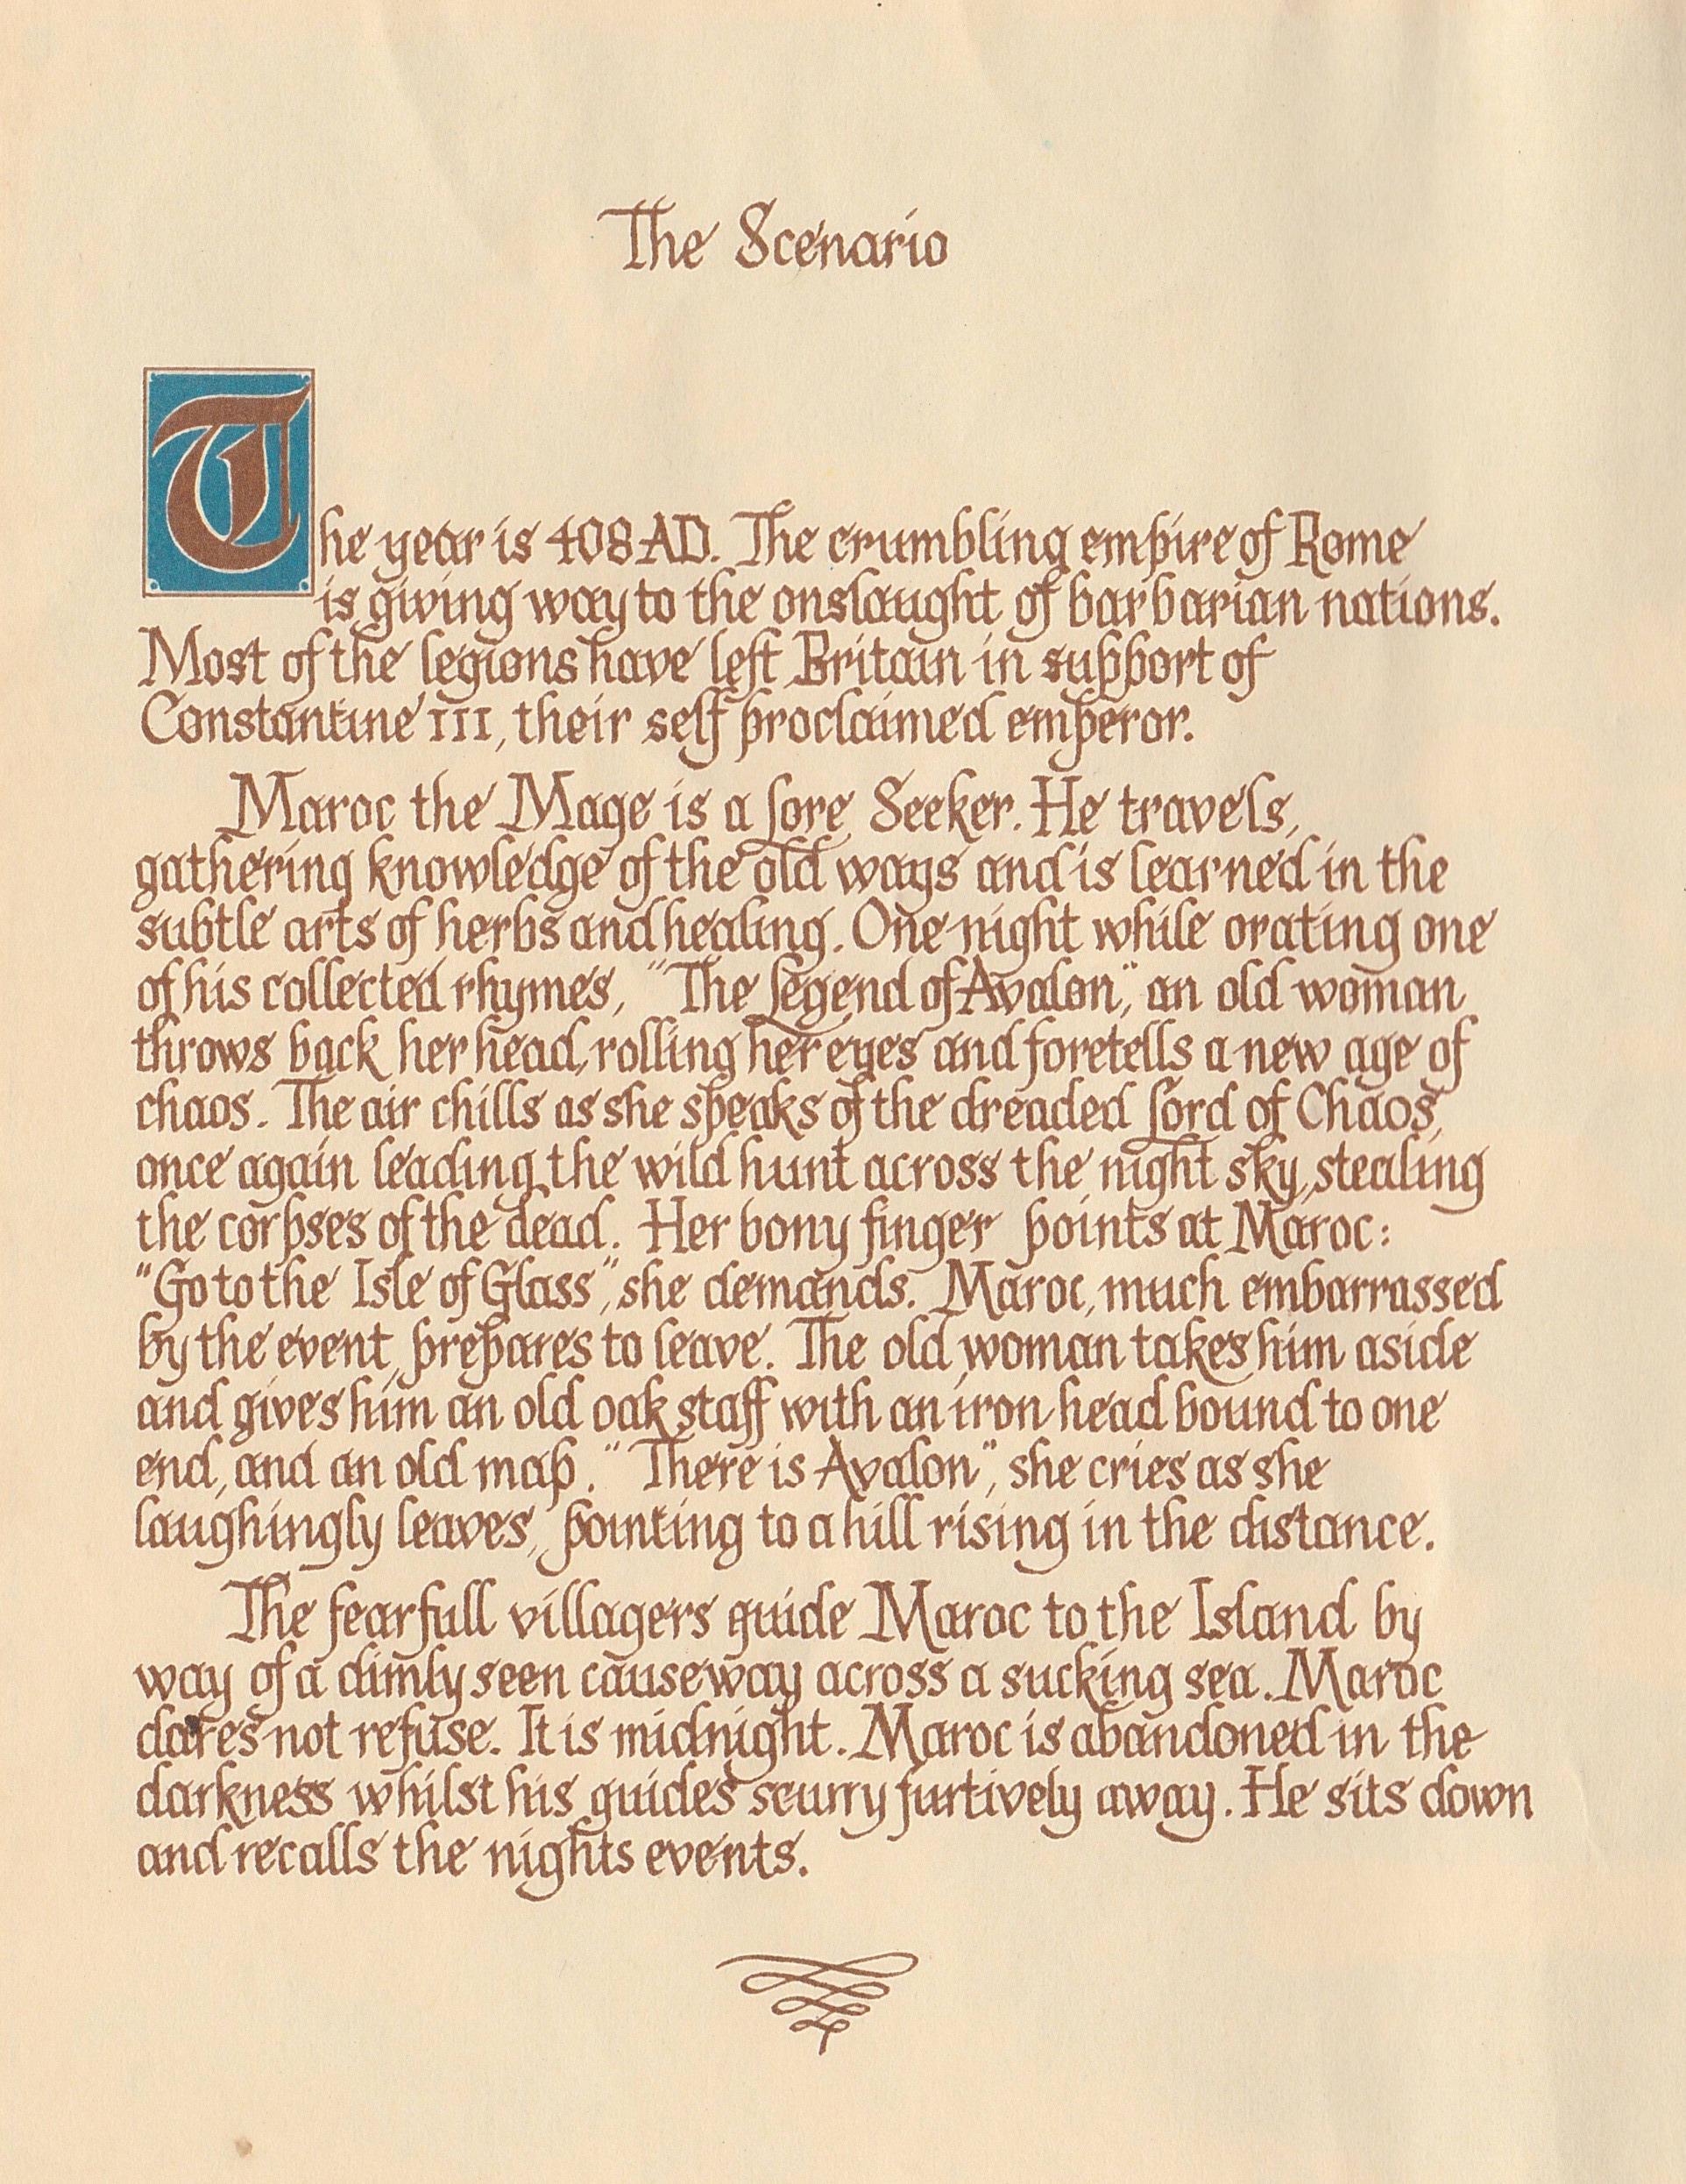 The Scenario
The year is 408 AD. The crumbling empire of Rome
is giving way to the onslaught of barbarian nations.
Most of the legions have left Britain in support of
Constantine III, their self proclaimed emperor.
Maroc the Mage is a Lore Seeker. He travels,
gathering knowledge of the old ways and is learned in the
subtle arts of herbs and healing. One night while orating one
of his collected rhymes, "The Legend of Avalon", an old woman
throws back her head, rolling her eyes and foretells a new age of
chaos. The air chills as she speaks of the dreaded Lord of Chaos,
once again leading the wild hunt across the night sky, stealing
the corpses of the dead. Her bony finger points at Maroc:
"Go to the Isle of Glass", she demands. Maroc, much embarrassed
by the event, prepares to leave. The old woman takes him aside
and gives him an old oak staff with an iron head bound to one
end, and an old map. "There is Avalon", she cries as she
laughingly leaves, pointing to a hill rising in the distance.
The fearfull villagers guide Maroc to the Island by
way of a dimly seen causeway across a sucking sea. Maroc
dares not refuse. It is midnight. Maroc is abandoned in the
darkness whilst his guides scurry furtively away. He sits down
and recalls the nights events.